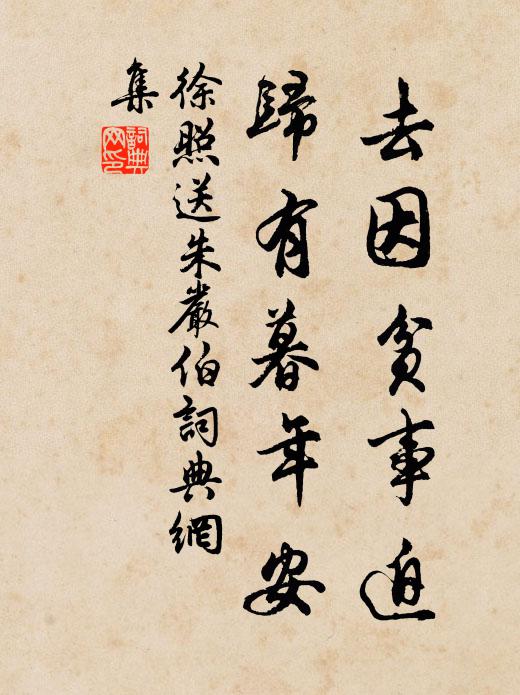 去因貧事迫
歸有暮年安
徐照送朱嚴伯詞典網
集
詞典
网印